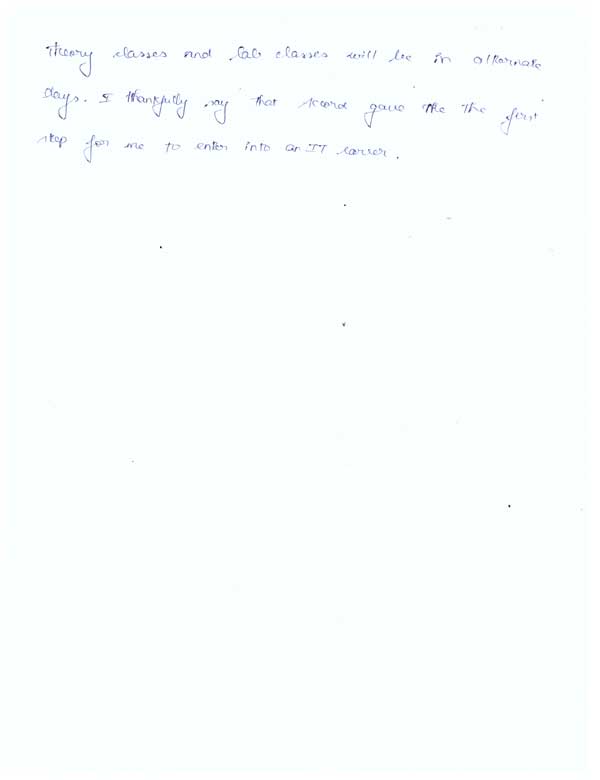 Theory classes and lab classes will be in alternate
days. I thankfully say that accord gave me the first
step for me to enter into an IT carrer.